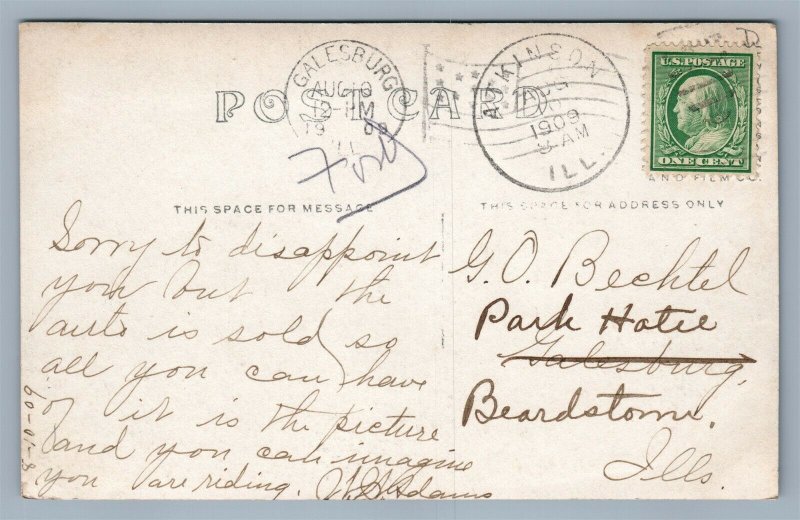 POST CARD
GALESBURG
AUG 10
12-PM
1909
ILL
ATKINSON
1909
AM
ILL.
U.S. POSTAGE
ONE CENT
AND FILM CO.
THIS SPACE FOR MESSAGE
THIS SPACE FOR ADDRESS ONLY
Sorry to disappoint
you but the
auto is sold so
all you can have
of it is the picture
and you can imagine
you are riding. Adams
8-10-09
G. O. Bechtel
Park Hotel
Galesburg,
Beardstown.
Ills.